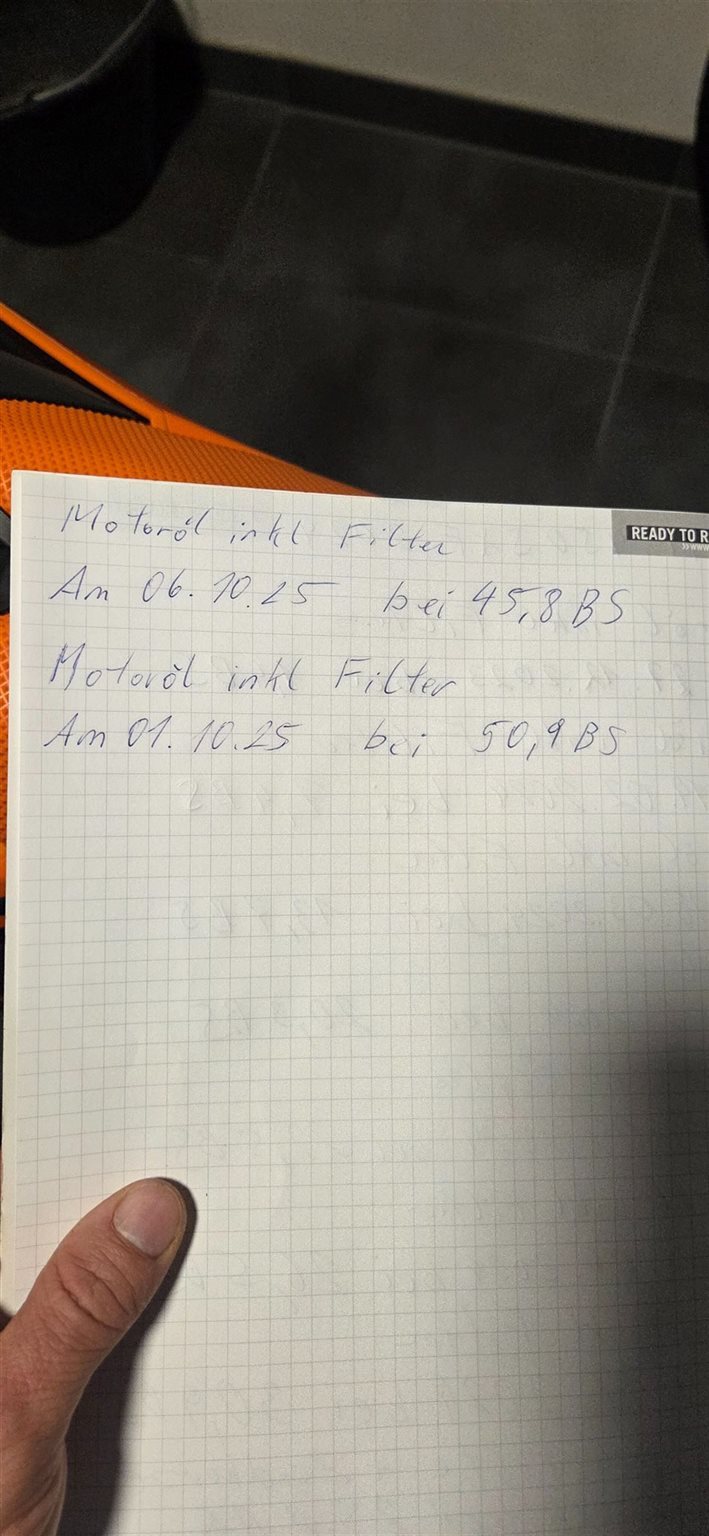 Motoröl inkl Filter
READY TO R
Am 06.10.25 bei 45,8 BS
Motoröl inkl Filter
Am 01.10.25 bei 50,9 BS